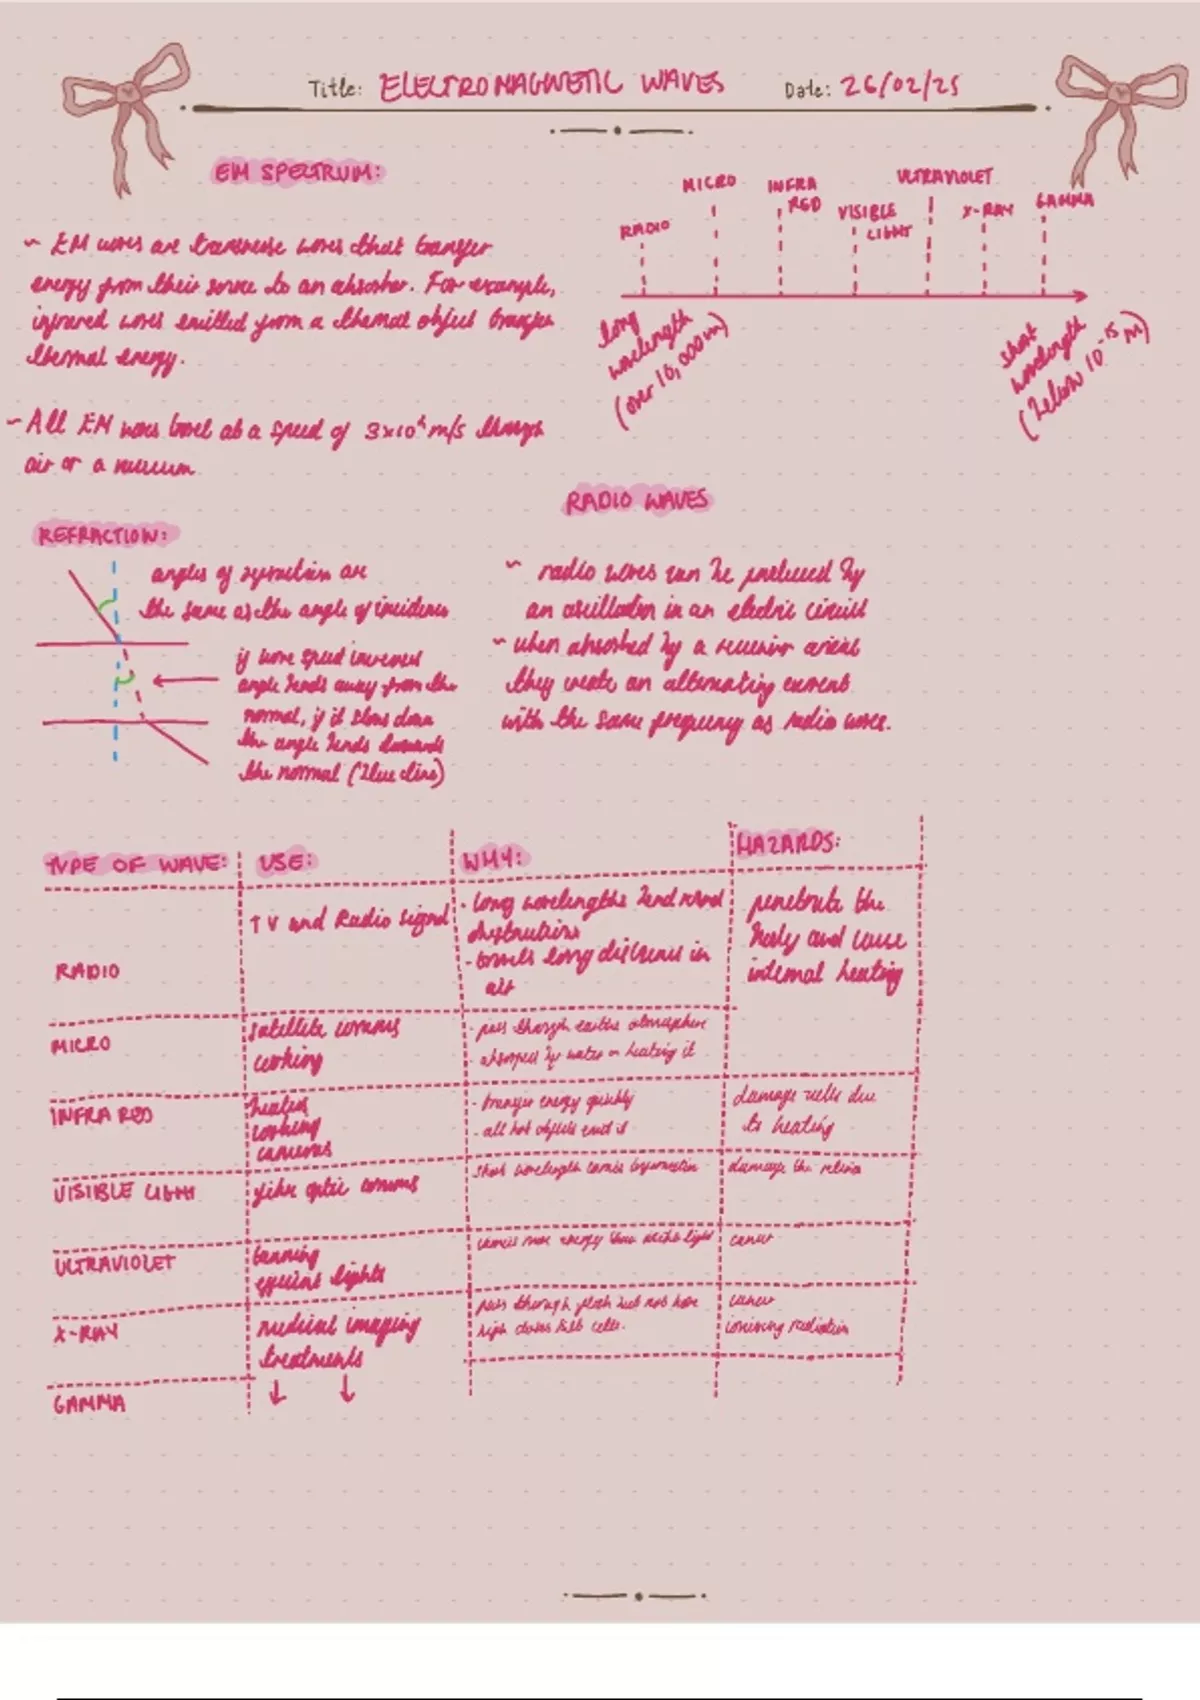 Title: ELECTROMAGNETIC WAVES Date: 26/02/25
EM SPECTRUM:
~ EM waves are transverse waves that transfer
energy from their source to an absorber. For example,
infrared waves emitted from a thermal object transfer
thermal energy.
~ All EM waves travel at a speed of 3x10⁸ m/s through
air or a vacuum
RADIO
MICRO
INFRA
RED
VISIBLE
LIGHT
ULTRAVIOLET
X-RAY
GAMMA
long
wavelength
(over 10,000m)
short
wavelength
(below 10⁻¹⁵ m)
REFRACTION:
angles of refraction are
the same as the angle of incidence
if wave speed increases
angle bends away from the
normal, if it slows down
the angle bends towards
the normal (blue line)
RADIO WAVES
~ radio waves can be produced by
an oscillation in an electric circuit
~ when absorbed by a receiver aerial
they create an alternating current
with the same frequency as radio waves.
TYPE OF WAVE: USE: WHY: HAZARDS:
RADIO
TV and Radio signal
- long wavelengths bend round
obstructions
- travels long distances in
air
penetrate the
body and cause
internal heating
MICRO
satellite comms
cooking
- pass through earths atmosphere
- absorbed by water heating it
INFRA RED
heater
cooking
cameras
- transfer energy quickly
- all hot objects emit it
damage cells due
to heating
VISIBLE LIGHT
fibre optic comms
short wavelength carries information
damage the retina
ULTRAVIOLET
tanning
efficient lights
carries more energy than light
cancer
X-RAY
medical imaging
treatments
pass through flesh but not bone
high doses kill cells.
cancer
ionising radiation
GAMMA
↓ ↓